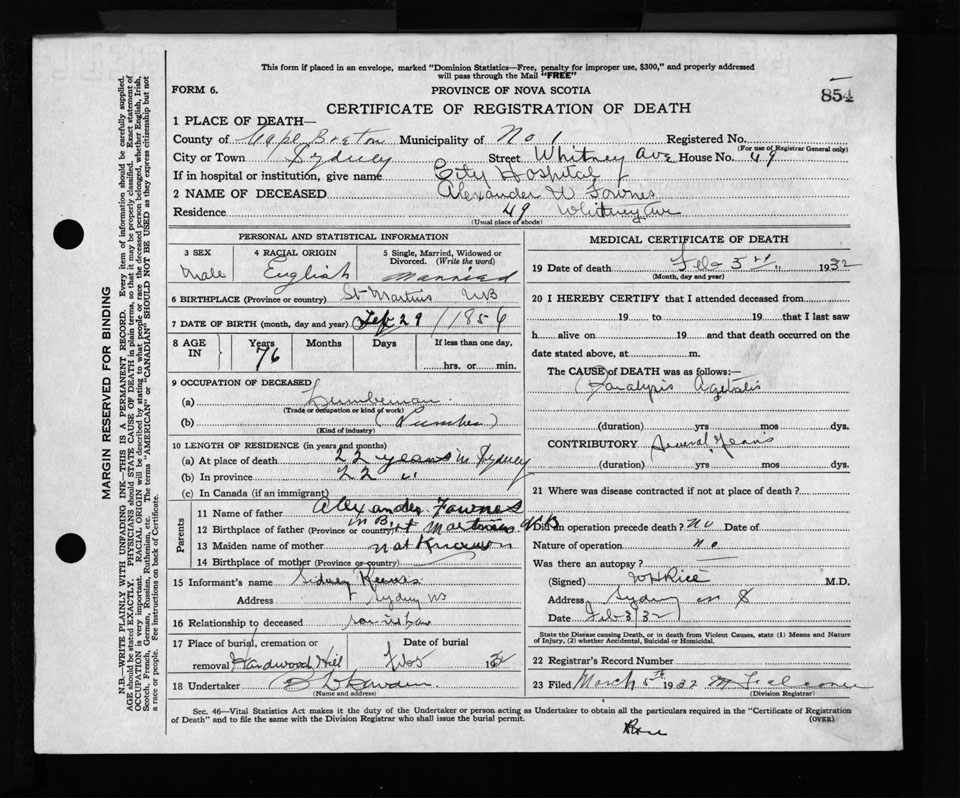 This form if placed in an envelope, marked "Dominion Statistics—Free, penalty for improper use, $300," and properly addressed
will pass through the Mail "FREE"
FORM 6.
PROVINCE OF NOVA SCOTIA
854
CERTIFICATE OF REGISTRATION OF DEATH
1 PLACE OF DEATH—
County of Cape Breton Municipality of No 1 Registered No.
(For use of Registrar General only)
City or Town Sydney Street Whitney Ave House No. 49
If in hospital or institution, give name City Hospital
2 NAME OF DECEASED Alexander W Fownes
Residence 49 Whitney Ave
(Usual place of abode)
PERSONAL AND STATISTICAL INFORMATION
3 SEX
Male
4 RACIAL ORIGIN
English
5 Single, Married, Widowed or
Divorced. (Write the word)
Married
6 BIRTHPLACE (Province or country) St Martins NB
7 DATE OF BIRTH (month, day and year) 29 / 1856
8 AGE
IN
Years
76
Months
Days
If less than one day,
hrs. or min.
9 OCCUPATION OF DECEASED
(a) Lumberman
(Trade or occupation or kind of work)
(b) (Lumber)
(Kind of industry)
10 LENGTH OF RESIDENCE (in years and months)
(a) At place of death 22 years in Sydney
(b) In province 22
(c) In Canada (if an immigrant)
Parents
11 Name of father Alexander Fownes
12 Birthplace of father (Province or country) St Martins NB
13 Maiden name of mother not Known
14 Birthplace of mother (Province or country)
15 Informant's name Sidney
Address Sydney NS
16 Relationship to deceased son in law
17 Place of burial, cremation or
removal Hardwood Hill
Date of burial
Feb 5 1932
18 Undertaker
(Name and address)
MEDICAL CERTIFICATE OF DEATH
19 Date of death Feb 3rd 1932
(Month, day and year)
20 I HEREBY CERTIFY that I attended deceased from
19 to 19 that I last saw
h alive on 19 and that death occurred on the
date stated above, at m.
The CAUSE of DEATH was as follows:—
Paralysis Agitans
(duration) yrs mos dys.
CONTRIBUTORY Several Years
(duration) yrs mos dys.
21 Where was disease contracted if not at place of death?
Did an operation precede death? No Date of
Nature of operation no
Was there an autopsy?
(Signed) W H Rice M.D.
Address Sydney N S
Date Feb 3/32
State the Disease causing Death, or in death from Violent Causes, state (1) Means and Nature
of Injury, (2) whether Accidental, Suicidal or Homicidal.
22 Registrar's Record Number
23 Filed March 5th 1932
(Division Registrar)
Sec. 46—Vital Statistics Act makes it the duty of the Undertaker or person acting as Undertaker to obtain all the particulars required in the "Certificate of Registration
of Death" and to file the same with the Division Registrar who shall issue the burial permit.
(OVER)
MARGIN RESERVED FOR BINDING
N.B.—WRITE PLAINLY WITH UNFADING INK—THIS IS A PERMANENT RECORD. Every item of information should be carefully supplied.
AGE should be stated EXACTLY. PHYSICIANS should STATE CAUSE OF DEATH in plain terms, so that it may be properly classified. Exact statement of
OCCUPATION is very important. RACIAL ORIGIN will be described by stating to what people or race the deceased person belonged, whether English, Irish,
Scotch, French, German, Russian, Ruthenian, etc. The terms "AMERICAN" or "CANADIAN" SHOULD NOT BE USED as they express citizenship but not
a race or people. See instructions on back of Certificate.